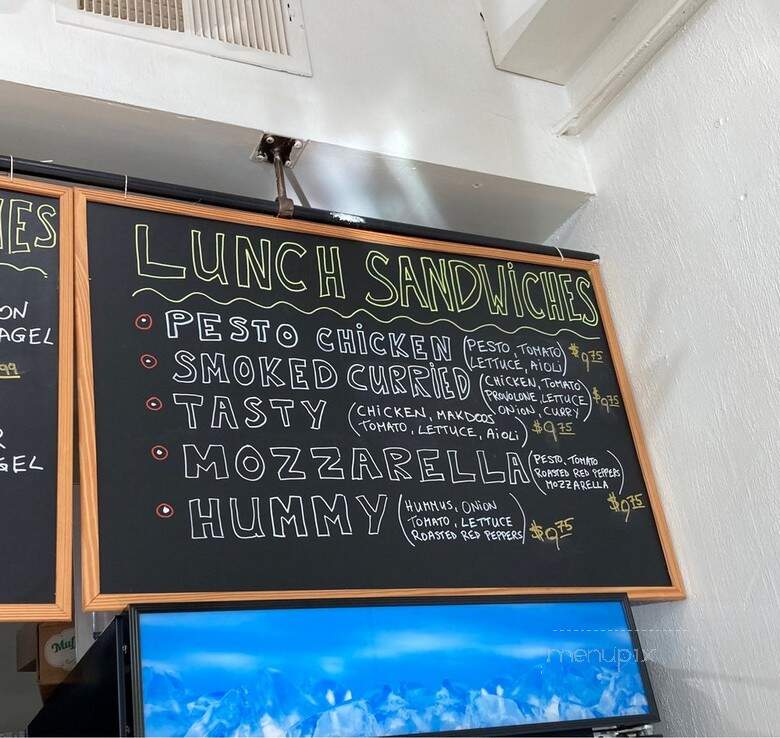 IES
ON
AGEL
99
R
GEL
LUNCH SANDWiCHES
PESTO CHiCKEN (PESTO, TOMATO
LETTUCE, AiOLi) $9.75
SMOKED CURRiED (CHICKEN, TOMATO
PROVOLONE, LETTUCE
ONiON, CURRY) $9.75
TASTY (CHICKEN, MAKDOOS
TOMATO, LETTUCE, AiOLi) $9.75
MOZZARELLA (PESTO, TOMATO
ROASTED RED PEPPERS
MOZZARELLA) $9.75
HUMMY (HUMMUS, ONION
TOMATO, LETTUCE
ROASTED RED PEPPERS) $9.75
Muf
menupix